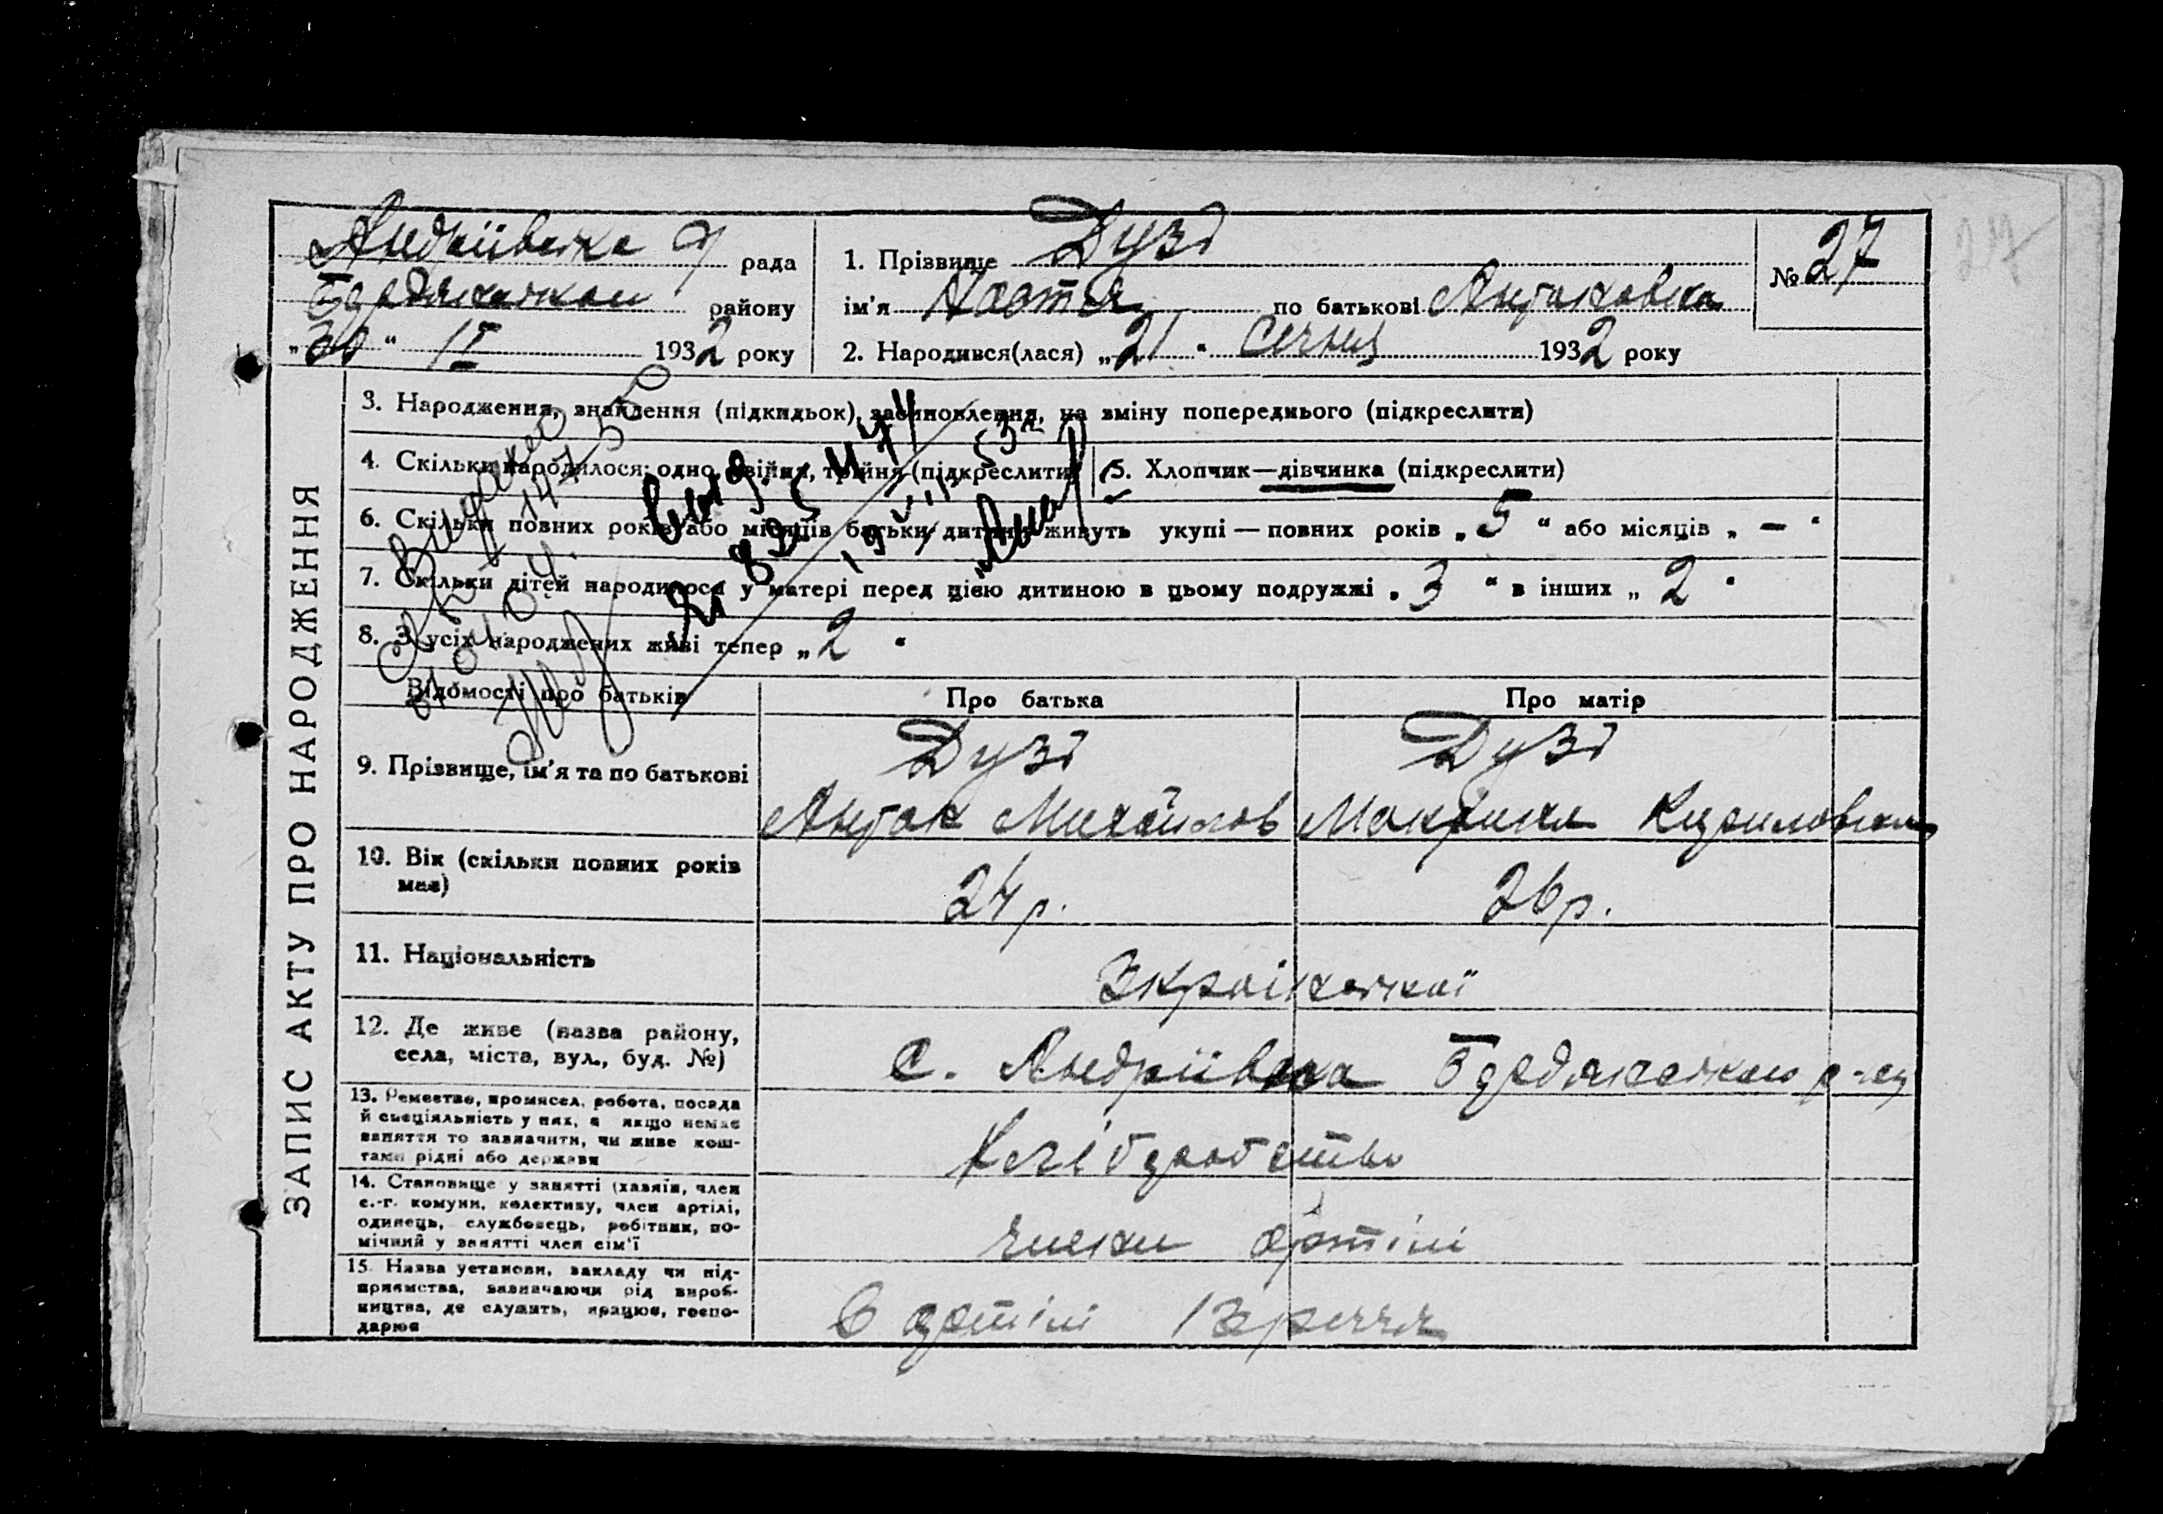 Андріївська рада
Бердянськом району
„30“ ІV 1932 року
1. Прізвище Дузь
ім'я Настя по батькові Антоновна
2. Народився(лася) „21“ Січня 1932 року
№ 27
27
ЗАПИС АКТУ ПРО НАРОДЖЕННЯ
3. Народження, знайдення (підкидьок), засиновлення, на зміну попереднього (підкреслити)
4. Скільки народилося: одно, двійня, трійня (підкреслити)
5. Хлопчик—дівчинка (підкреслити)
6. Скільки повних років або місяців батьки дитини живуть укупі — повних років „5“ або місяців „—“
7. Скільки дітей народилося у матері перед цією дитиною в цьому подружжі „3“ в інших „2“
8. З усіх народжених живі тепер „2“
Відомості про батьків
Про батька
Про матір
9. Прізвище, ім'я та по батькові
Дузь
Антон Михайлов
Дузь
Макрина Кириловна
10. Вік (скільки повних років має)
24 р.
26 р.
11. Національність
Української
12. Де живе (назва району,
села, міста, вул., буд. №)
С. Андріївка Бердянського р-ну
13. Ремество, промисел, робота, посада
й спеціяльність у них, а якщо немає
заняття то зазначити, чи живе кош-
тами рідні або держави
Хліборобство
14. Становище у занятті (хазяїн, член
с.-г. комуни, колективу, член артілі,
одинець, службовець, робітник, по-
мічний у занятті член сім'ї
члени артілі
15. Назва установи, закладу чи під-
приємства, зазначаючи рід вироб-
ництва, де служить, працює, госпо-
дарює
в артілі